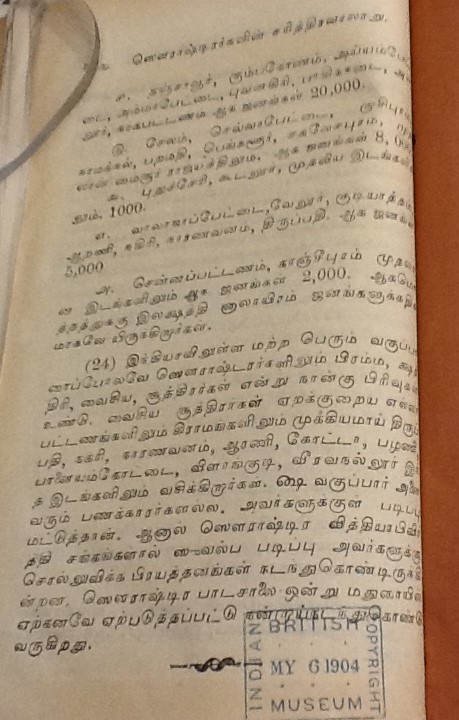 ஸௌராஷ்டிரர்களின் சரித்திரவரலாறு.
ச. தஞ்சாவூர், கும்பகோணம், அய்யம்பேட்
டை, அம்மாபேட்டை, புவனகிரி,
நாகபட்டணம் ஆக ஜனங்கள் 20,000.
ரு. சேலம், செவ்வாபேட்டை,
நாமக்கல், பறமதி, பெங்களூர்,
மைசூர் ராஜ்யத்திலும். ஆக ஜனங்கள் 8,
புதுச்சேரி, கூடலூர், முதலிய இடங்களி
லும். 1000.
எ. வாலாஜாப்பேட்டை, வேலூர், குடியாத்தம்
ஆரணி, நகிரி, நாரணவனம், திருப்பதி. ஆக ஜனங்
5,000
அ. சென்னப்பட்டணம், காஞ்சீபுரம் முதலா
ன இடங்களிலும் ஆக ஜனங்கள் 2,000. ஆகமொ
த்தத்துக்கு இலக்ஷத்தி னாலாயிரம் ஜனங்களுக்கதி
மாகவே யிருக்கிறார்கள்.
(24) இந்தியாவிலுள்ள மற்ற பெரும் வகுப்பா
ரைப்போலவே ஸௌராஷ்டரர்களிலும் பிரம்ம, க்ஷத்
திரி, வைசிய, சூத்திரர்கள் என்று நான்கு பிரிவுகள்
உண்டு. வைசிய சூத்திரர்கள் ஏறக்குறைய எல்லா
பட்டணங்களிலும் கிராமங்களிலும் முக்கியமாய் திருப்
பதி, நகரி, நாரணவனம், ஆரணி, கோட்டா, பழனி
பாளையம்கோட்டை, விளாங்குடி, வீரவநல்லூர் இந்
த இடங்களிலும் வசிக்கிறார்கள். ஷை வகுப்பார் அனை
வரும் பணக்காரர்களல்ல. அவர்களுக்குள் படிப்பு
மட்டுத்தான். ஆனால் ஸௌராஷ்டிர வித்தியாபிவிர்
த்தி சங்கங்களால் ஸ்வல்ப படிப்பு அவர்களுக்கு
சொல்லுவிக்க பிரயத்தனங்கள் நடந்துகொண்டிருக்கி
ன்றன. ஸௌராஷ்டிர பாடசாலை ஒன்று மதுரையில்
ஏற்கனவே ஏற்படுத்தப்பட்டு நன்றாய்நடந்துகொண்டு
வருகிறது.
INDIAN
BRITISH
MY 6 1904
MUSEUM
COPYRIGHT